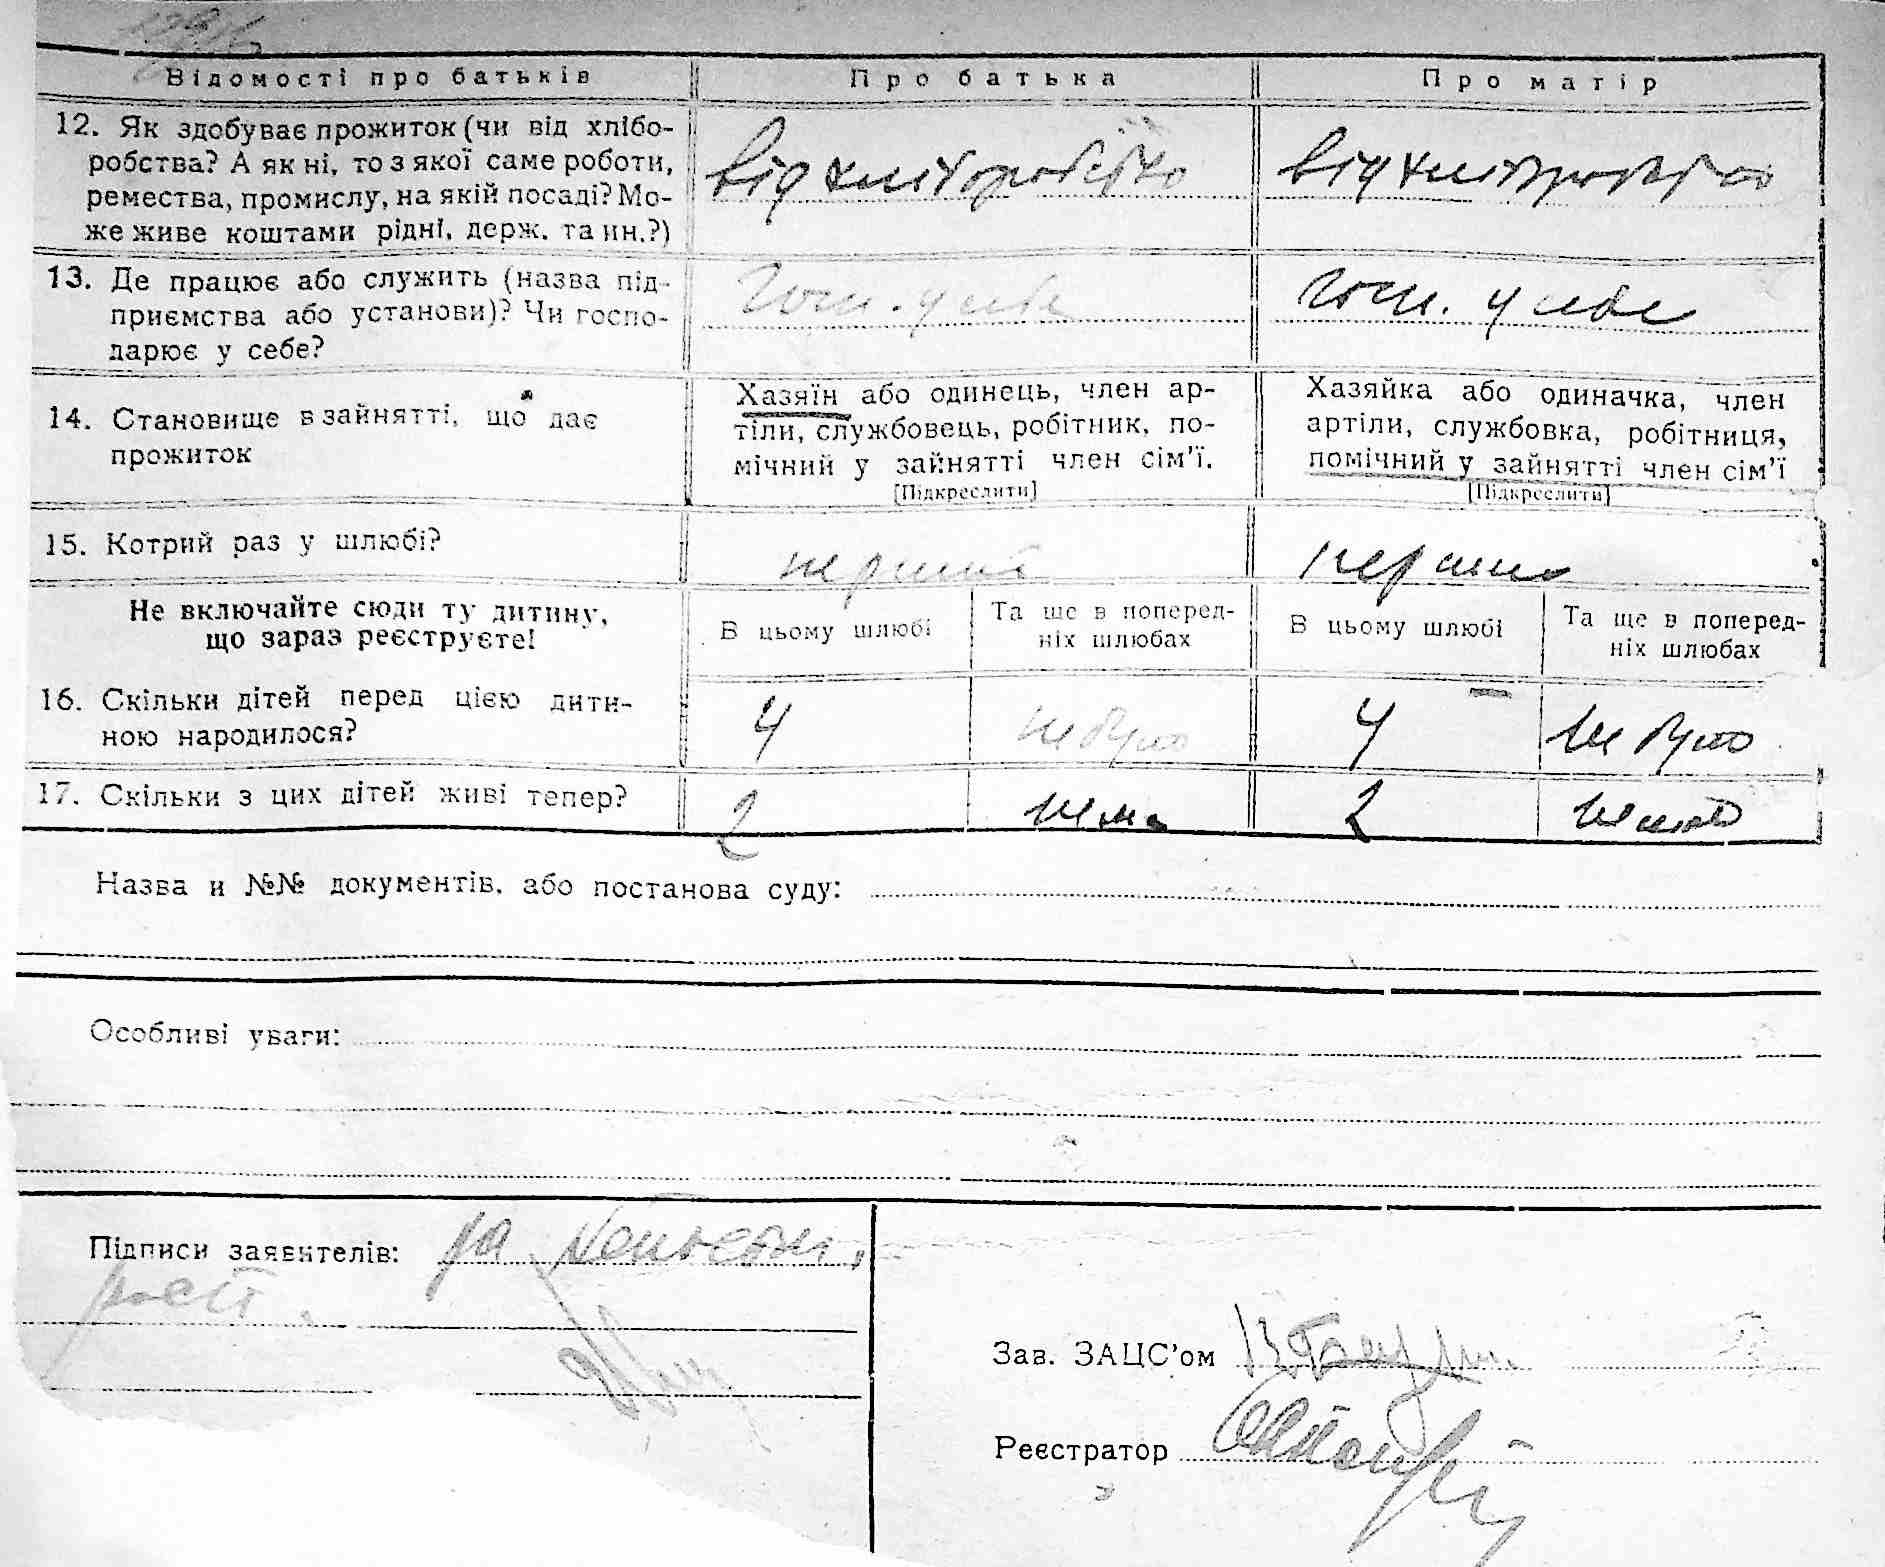 Відомості про батьків
Про батька
Про матір
12. Як здобуває прожиток (чи від хлібо-
робства? А як ні, то з якої саме роботи,
ремества, промислу, на якій посаді? Мо-
же живе коштами рідні, держ. та ин.?)
від хліборобства
від хліборобства
13. Де працює або служить (назва під-
приємства або установи)? Чи госпо-
дарює у себе?
госп. у себе
госп. у себе
14. Становище в зайнятті, що дає
прожиток
Хазяїн або одинець, член ар-
тіли, службовець, робітник, по-
мічний у зайнятті член сім'ї.
[Підкреслити]
Хазяйка або одиначка, член
артіли, службовка, робітниця,
помічний у зайнятті член сім'ї
[Підкреслити]
15. Котрий раз у шлюбі?
перший
перший
Не включайте сюди ту дитину,
що зараз реєструєте!
В цьому шлюбі
Та ще в поперед-
ніх шлюбах
В цьому шлюбі
Та ще в поперед-
ніх шлюбах
16. Скільки дітей перед цією дити-
ною народилося?
4
не було
4
не було
17. Скільки з цих дітей живі тепер?
2
нема
2
Назва и №№ документів, або постанова суду:
Особливі уваги:
Підписи заявителів:
Зав. ЗАЦС'ом
Реєстратор